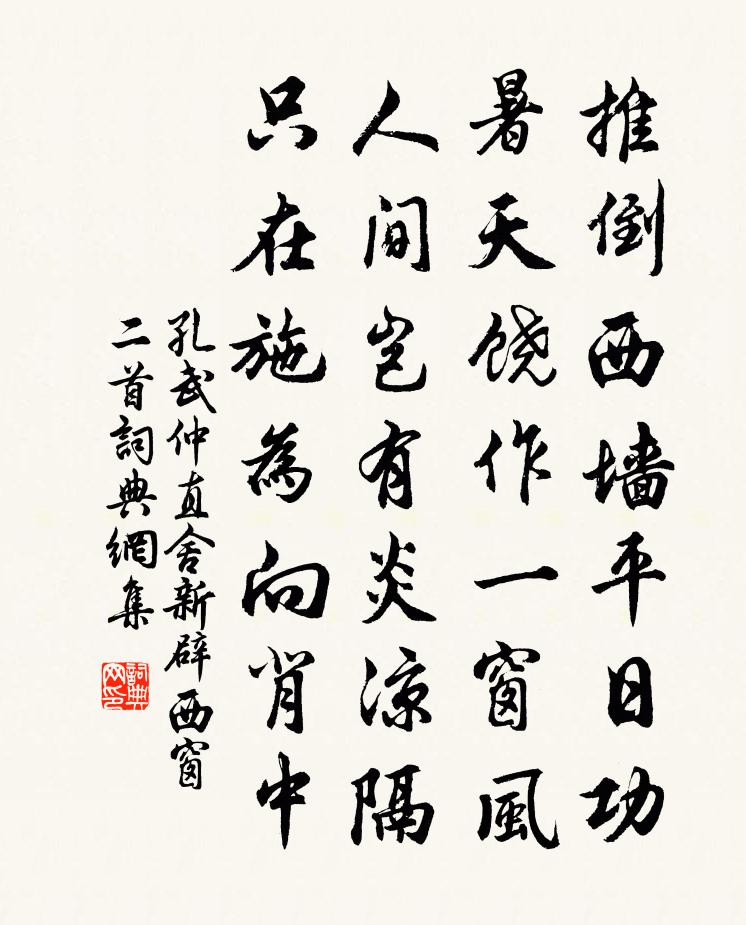 推倒西墙平日功
暑天饶作一窗風
人间岂有炎凉隔
只在施為向背中
孔武仲直舍新辟西窗
二首詞典網集
詞典
网印